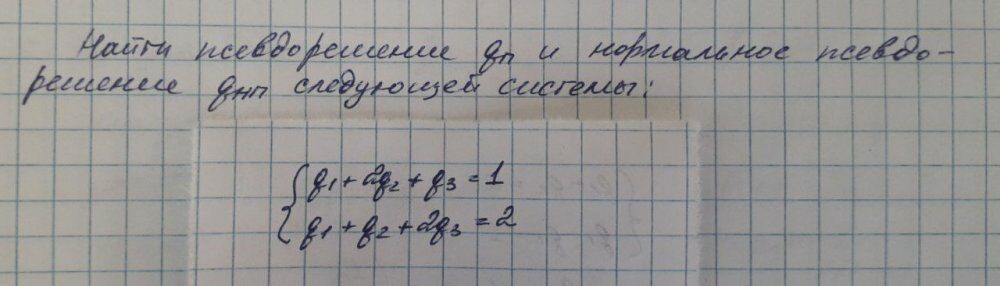 Найти псевдорешение qп и нормальное псевдо-
решение qнп следующей системы:
q1 + 2q2 + q3 = 1
q1 + q2 + 2q3 = 2